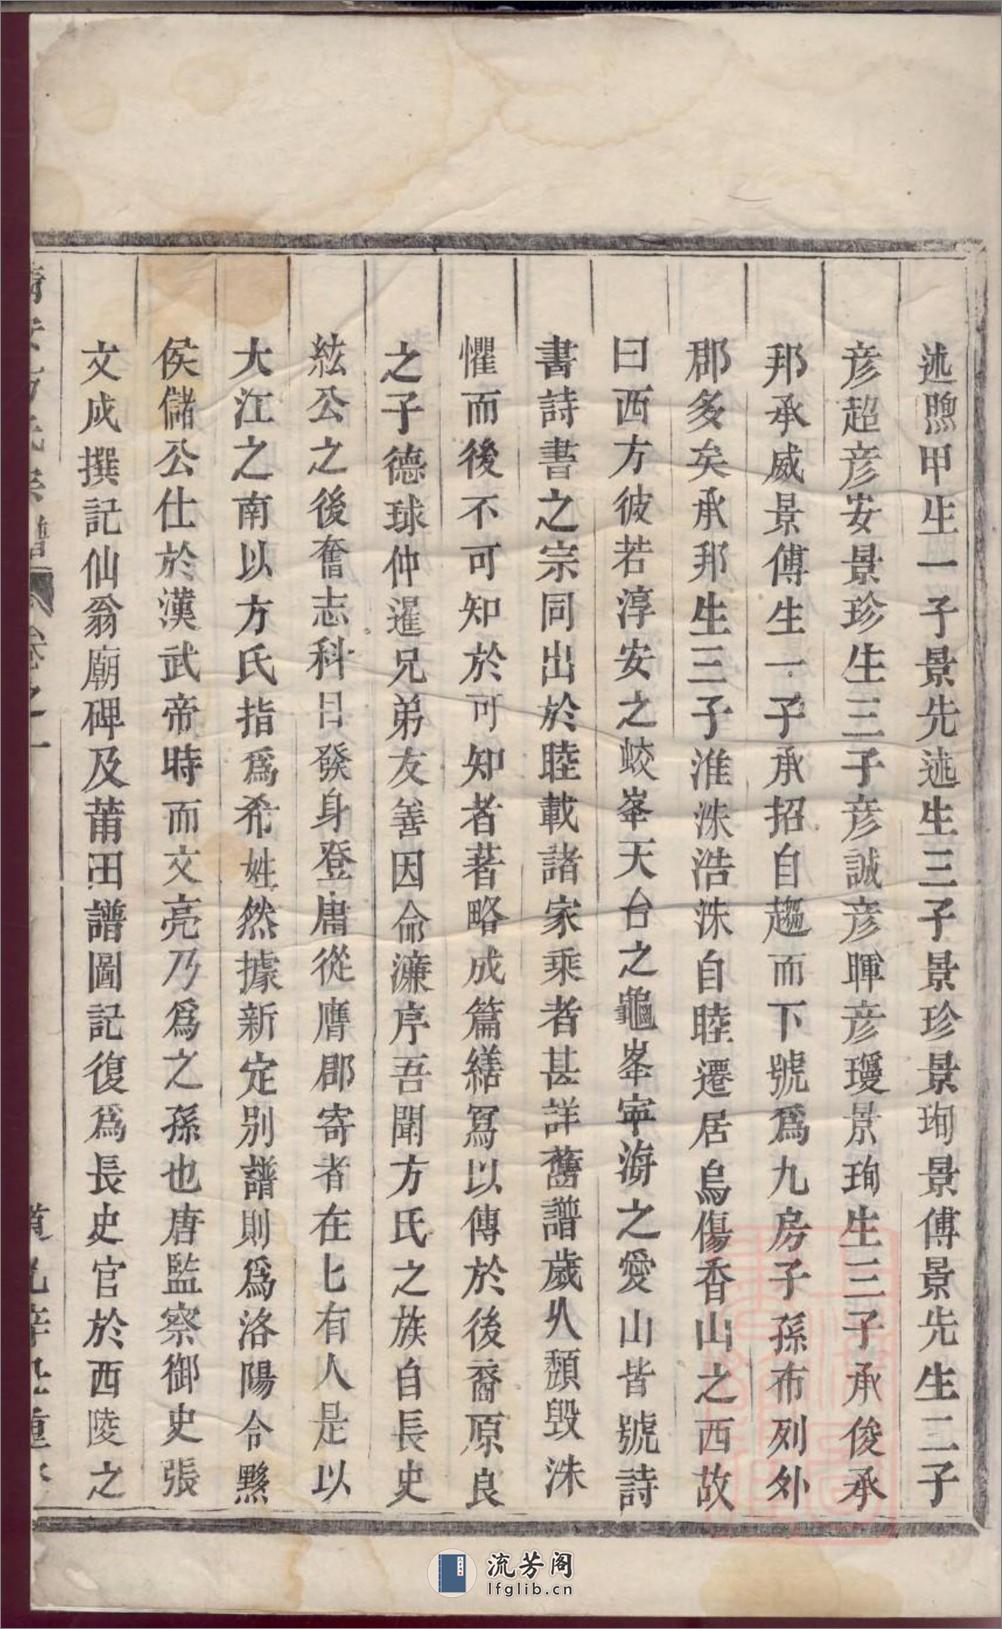 述煦甲生一子景先述生三子景珍景珣景傅景先生二子
彦超彦安景珍生三子彦誠彦暉彦瓊景珣生三子承俊承
邦承威景傅生一子承招自趨而下號爲九房子孫布列外
郡多矣承邦生三子淮洙浩洙自睦遷居烏傷香山之西故
曰西方彼若淳安之蛟峯天台之龜峯寜海之愛山皆號詩
書詩書之宗同出於睦載諸家乘者甚詳舊譜歲乆頽毀洙
懼而後不可知於可知者著略成篇繕寫以傳於後裔原良
之子德球仲暹兄弟友善因命濂序吾聞方氏之族自長史
紘公之後奮志科目發身登庸從膺郡寄者在匕有人是以
大江之南以方氏指爲希姓然據新定別譜則爲洛陽令黟
侯儲公仕於漢武帝時而文亮乃爲之孫也唐監察御史張
文成撰記仙翁廟碑及莆田譜圖記復爲長史官於西陵之
譜 卷之一
重
流芳阁
lfglib.cn